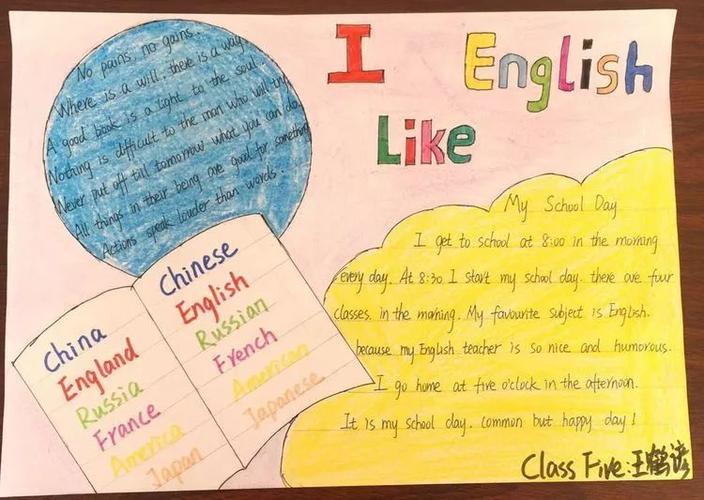 I English
Like
No pains, no gains.
Where is a will, there is a way.
A good book is a light to the soul.
Nothing is difficult to the man who will try.
Never put off till tomorrow what you can do
All things in their being are good for something
Actions speak louder than words.
China
England
Russia
France
America
Japan
Chinese
English
Russian
French
American
Japanese
My School Day
I get to school at 8:00 in the morning
every day. At 8:30 I start my school day. there are four
classes. in the morning. My favourite subject is English.
because my English teacher is so nice and humorous.
I go home at five o'clock in the afternoon.
It is my school day. common but happy day!
Class Five: 王鹤